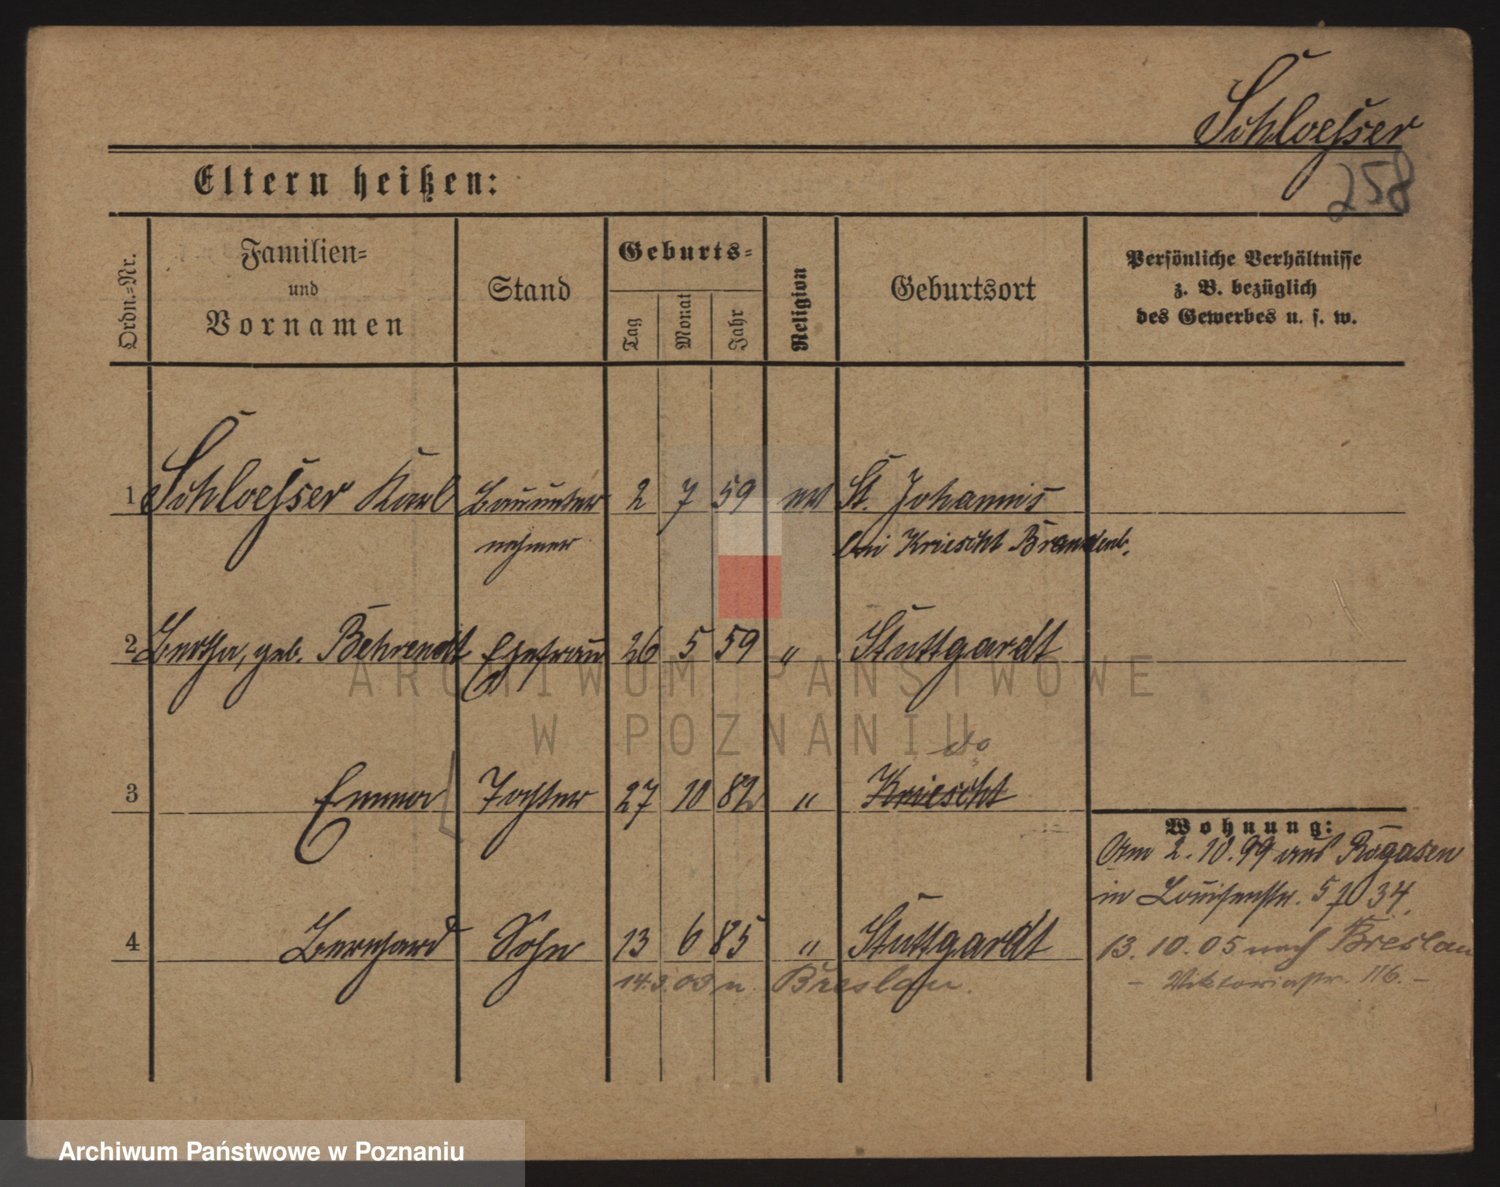 Schloesser
258
Eltern heißen:
Ordn.-Nr.
Familien-
und
Vornamen
Stand
Geburts-
Tag
Monat
Jahr
Religion
Geburtsort
Persönliche Verhältnisse
z. B. bezüglich
des Gewerbes u. s. w.
1 Schloesser Karl Bauunter 2 7 59 ev St. Johannis
nehmer bei Kriescht Brandenb.
2 Bertha, geb. Behrendt Ehefrau 26 5 59 " Stuttgardt
do
3 Emma Tochter 27 10 82 " Kriescht
Wohnung:
Am 2.10.99 aus Rogasen
in Louisenstr. 5 34.
4 Bernhard Sohn 13 6 85 " Stuttgardt
13.10.05 nach Breslau
14.3.03 n. Breslau.
– Viktoriastr. 116. –
ARCHIWUM PAŃSTWOWE
W POZNANIU
Archiwum Państwowe w Poznaniu